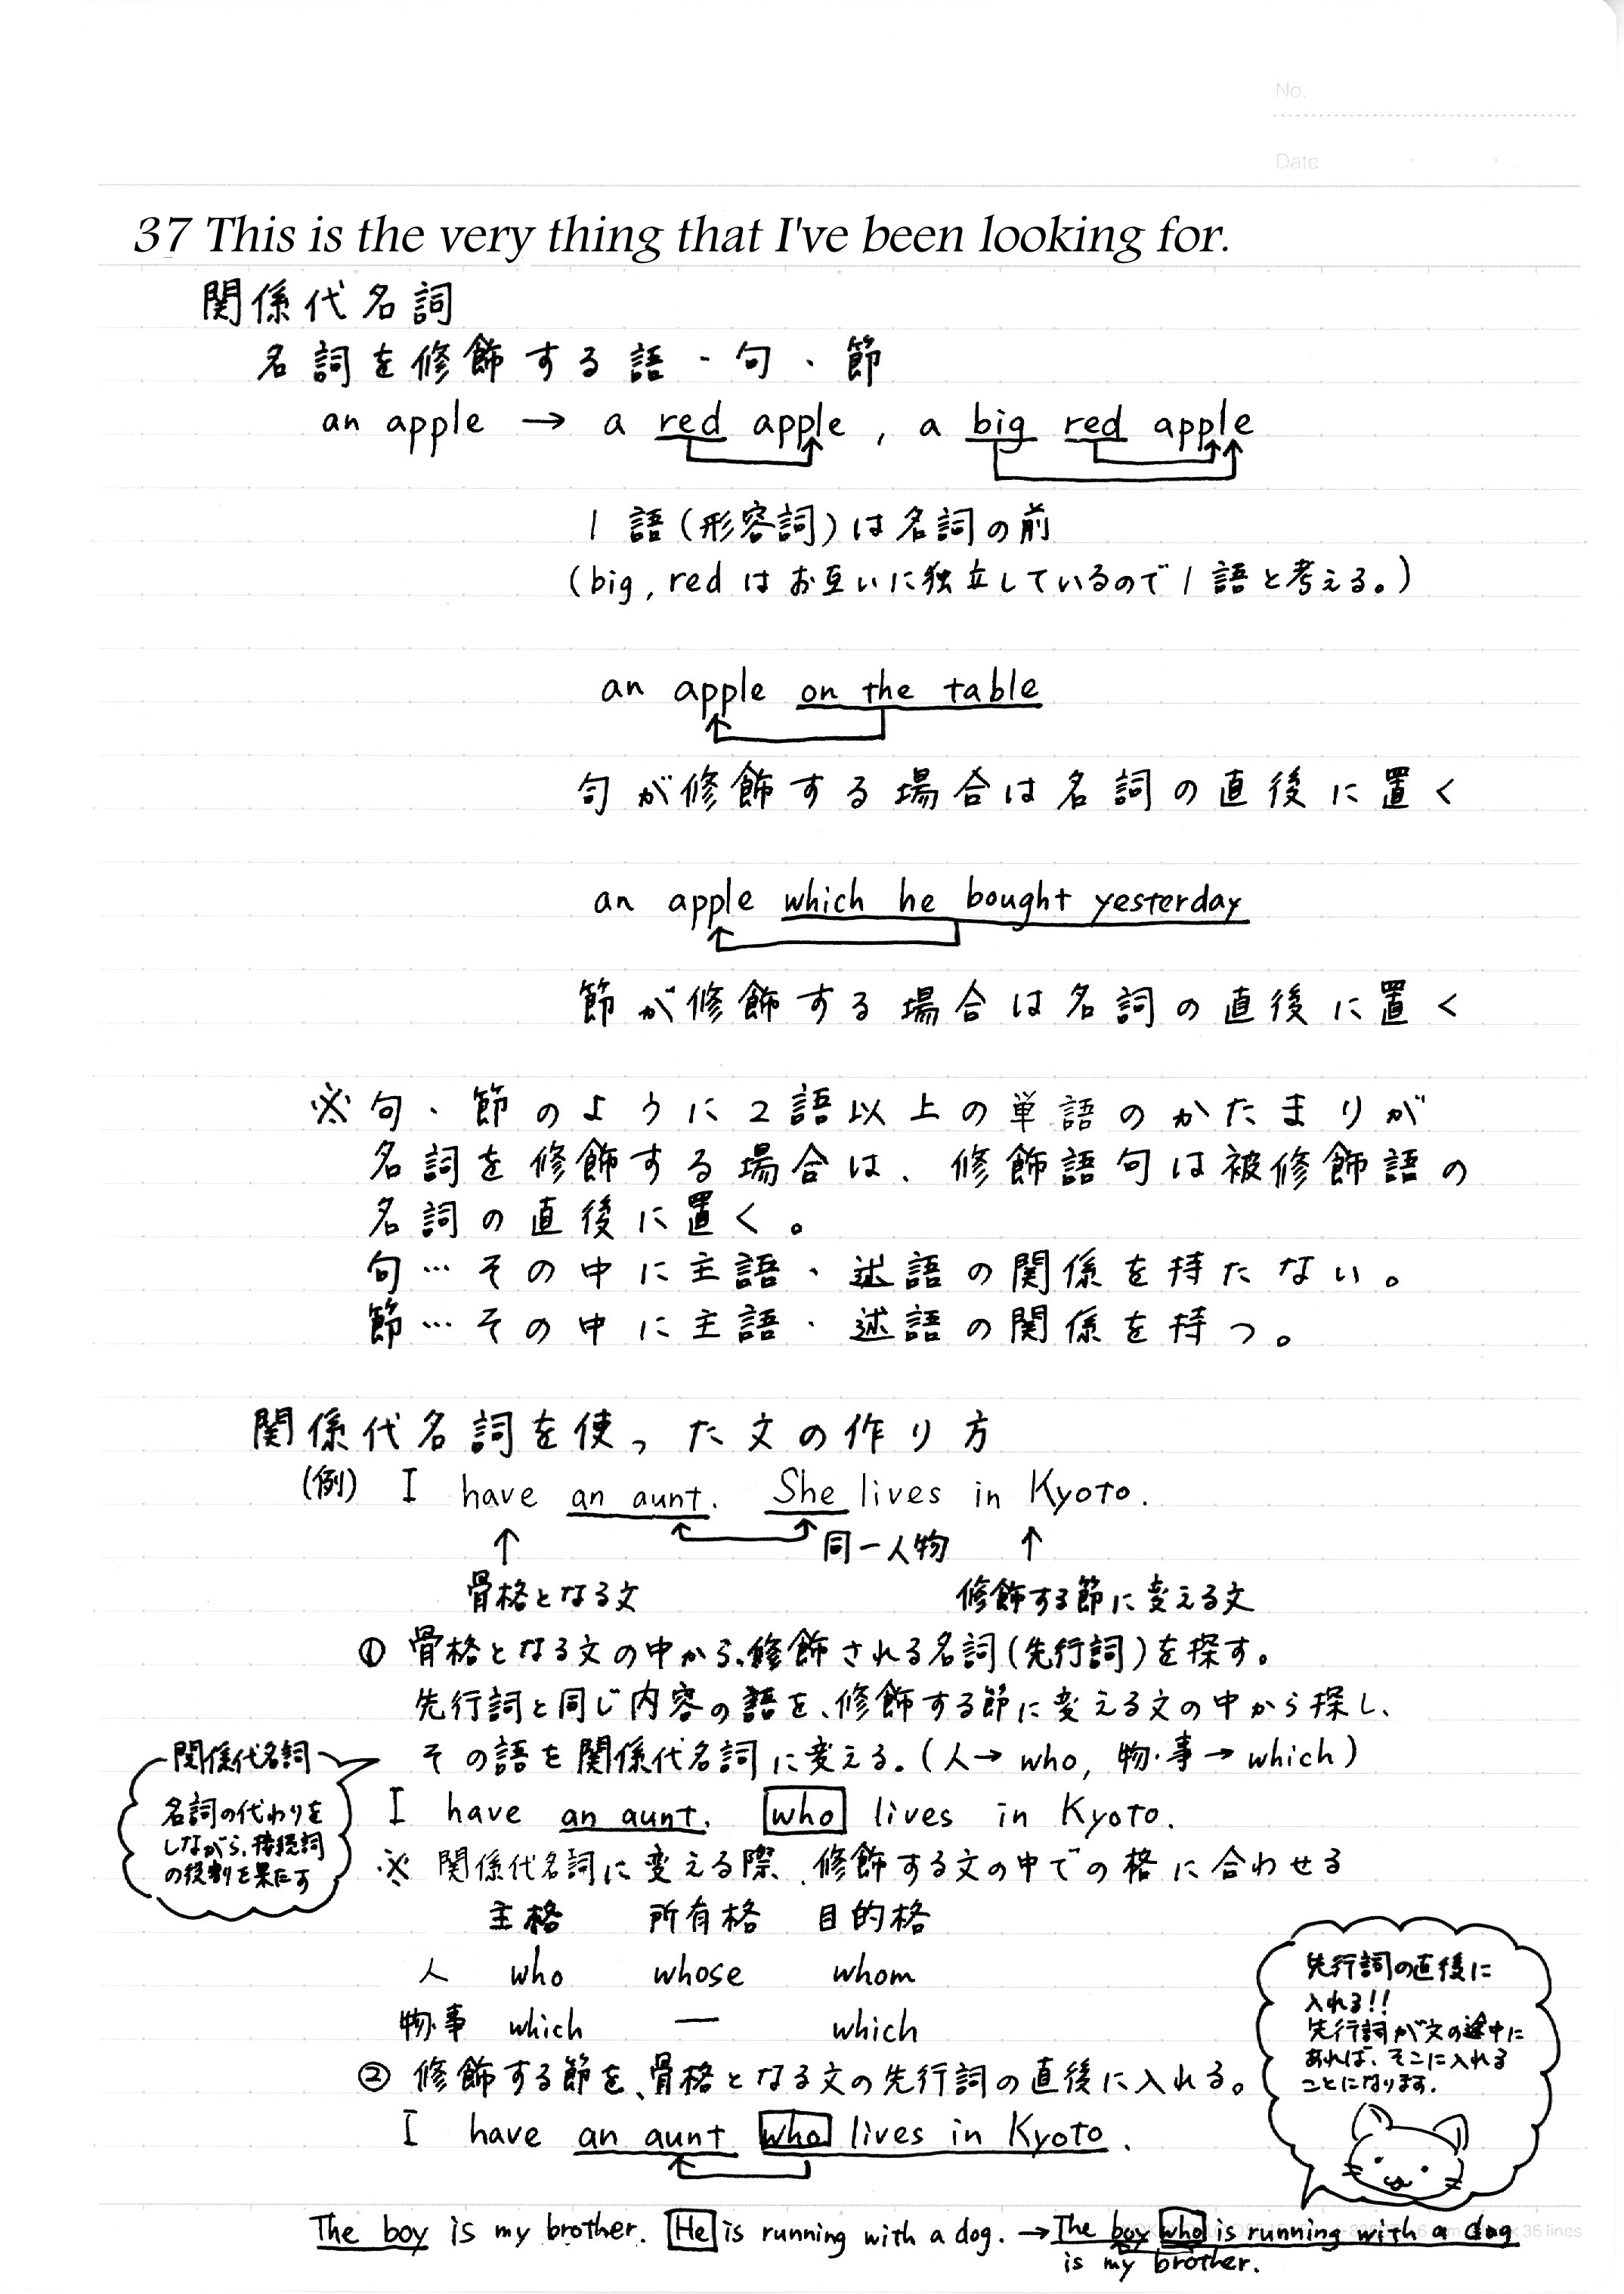 No.
Date
37 This is the very thing that I've been looking for.
関係代名詞
名詞を修飾する語・句・節
an apple → a red apple , a big red apple
1語(形容詞)は名詞の前
(big, red はお互いに独立しているので1語と考える。)
an apple on the table
句が修飾する場合は名詞の直後に置く
an apple which he bought yesterday
節が修飾する場合は名詞の直後に置く
※句・節のように2語以上の単語のかたまりが
名詞を修飾する場合は、修飾語句は被修飾語の
名詞の直後に置く。
句…その中に主語・述語の関係を持たない。
節…その中に主語・述語の関係を持つ。
関係代名詞を使った文の作り方
(例) I have an aunt. She lives in Kyoto.
↑ 同一人物 ↑
骨格となる文 修飾する節に変える文
① 骨格となる文の中から、修飾される名詞(先行詞)を探す。
先行詞と同じ内容の語を、修飾する節に変える文の中から探し、
その語を関係代名詞に変える。(人→ who, 物・事→ which)
関係代名詞
名詞の代わりを
しながら、接続詞
の役割を果たす
I have an aunt. who lives in Kyoto.
※ 関係代名詞に変える際、修飾する文の中での格に合わせる
主格 所有格 目的格
人 who whose whom
物・事 which — which
② 修飾する節を、骨格となる文の先行詞の直後に入れる。
I have an aunt who lives in Kyoto.
先行詞の直後に
入れる!!
先行詞が文の途中に
あれば、そこに入れる
ことになります。
The boy is my brother. He is running with a dog. → The boy who is running with a dog
is my brother.
x 36 lines